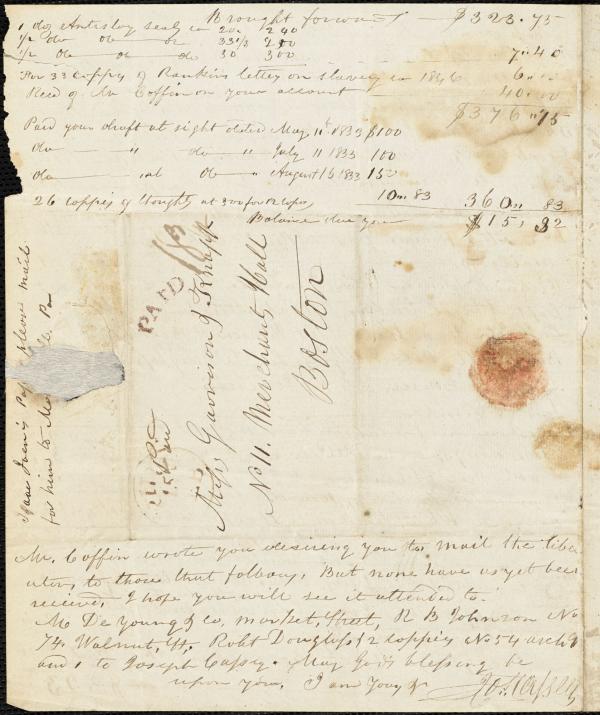 Brought forward $323.75
1 doz Antislav seals 20 2 40
1/2 do do do 33 1/3 2 00
1/2 do do do 50 3 00
7 " 40
For 33 coppey of Rankins letter on slavery
Recd of Mr Coffin on your account 40.00
$376 " 15
Paid your draft at sight dated May 11th 1833 $100
do " do " July 11 1833 100
do do " August 16 1833 150
26 coppies of thoughts at 10 " 83 360 " 83
Balance due you $15, 32
PAID
Messrs Garrison & Knapp
No 11. Merchants Hall
Boston
please mail
for him to
Mr. Coffin wrote you desiring you to mail the libe
rator, to those that follows, But none have as yet been
received, I hope you will see it attended to.
Mr De Young & co, market, Street, R B Johnson No
74 Walnut, St, Robt Douglass 2 coppies No 54 arch St
and 1 to Joseph Cassey. May God's blessing be
upon you, I am Yours &c Jos. Cassey